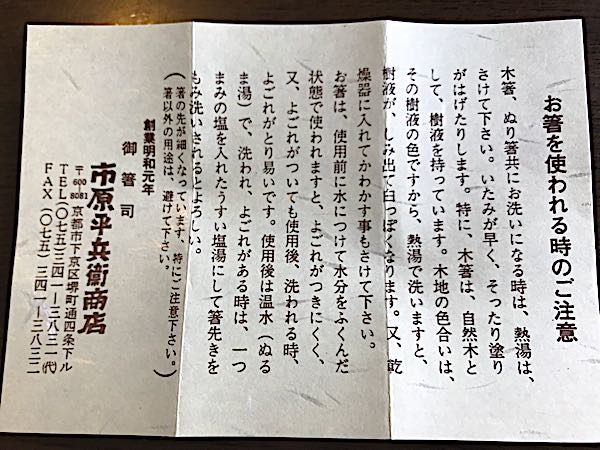 お箸を使われる時のご注意
木箸、ぬり箸共にお洗いになる時は、熱湯は、
さけて下さい。いたみが早く、そったり塗り
がはげたりします。特に、木箸は、自然木と
して、樹液を持っています。木地の色合いは、
その樹液の色ですから、熱湯で洗いますと、
樹液が、しみ出て白っぽくなります。又、乾
燥器に入れてかわかす事もさけて下さい。
お箸は、使用前に水につけて水分をふくんだ
状態で使われますと、よごれがつきにくく、
又、よごれがついても使用後、洗われる時、
よごれがとり易いです。使用後は温水（ぬる
ま湯）で、洗われ、よごれがある時は、一つ
まみの塩を入れたうすい塩湯にして箸先きを
もみ洗いされるとよろしい。
（箸の先が細くなっています、特にご注意下さい。
箸以外の用途は、避けて下さい。）
創業明和元年
御箸司
市原平兵衞商店
〒600-8081 京都市下京区堺町通四条下ル
TEL（〇七五）三四一ー三八三一（代）
FAX（〇七五）三四一ー三八三二